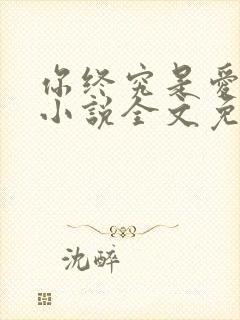 你终究是爱
小说全文免
沈醉